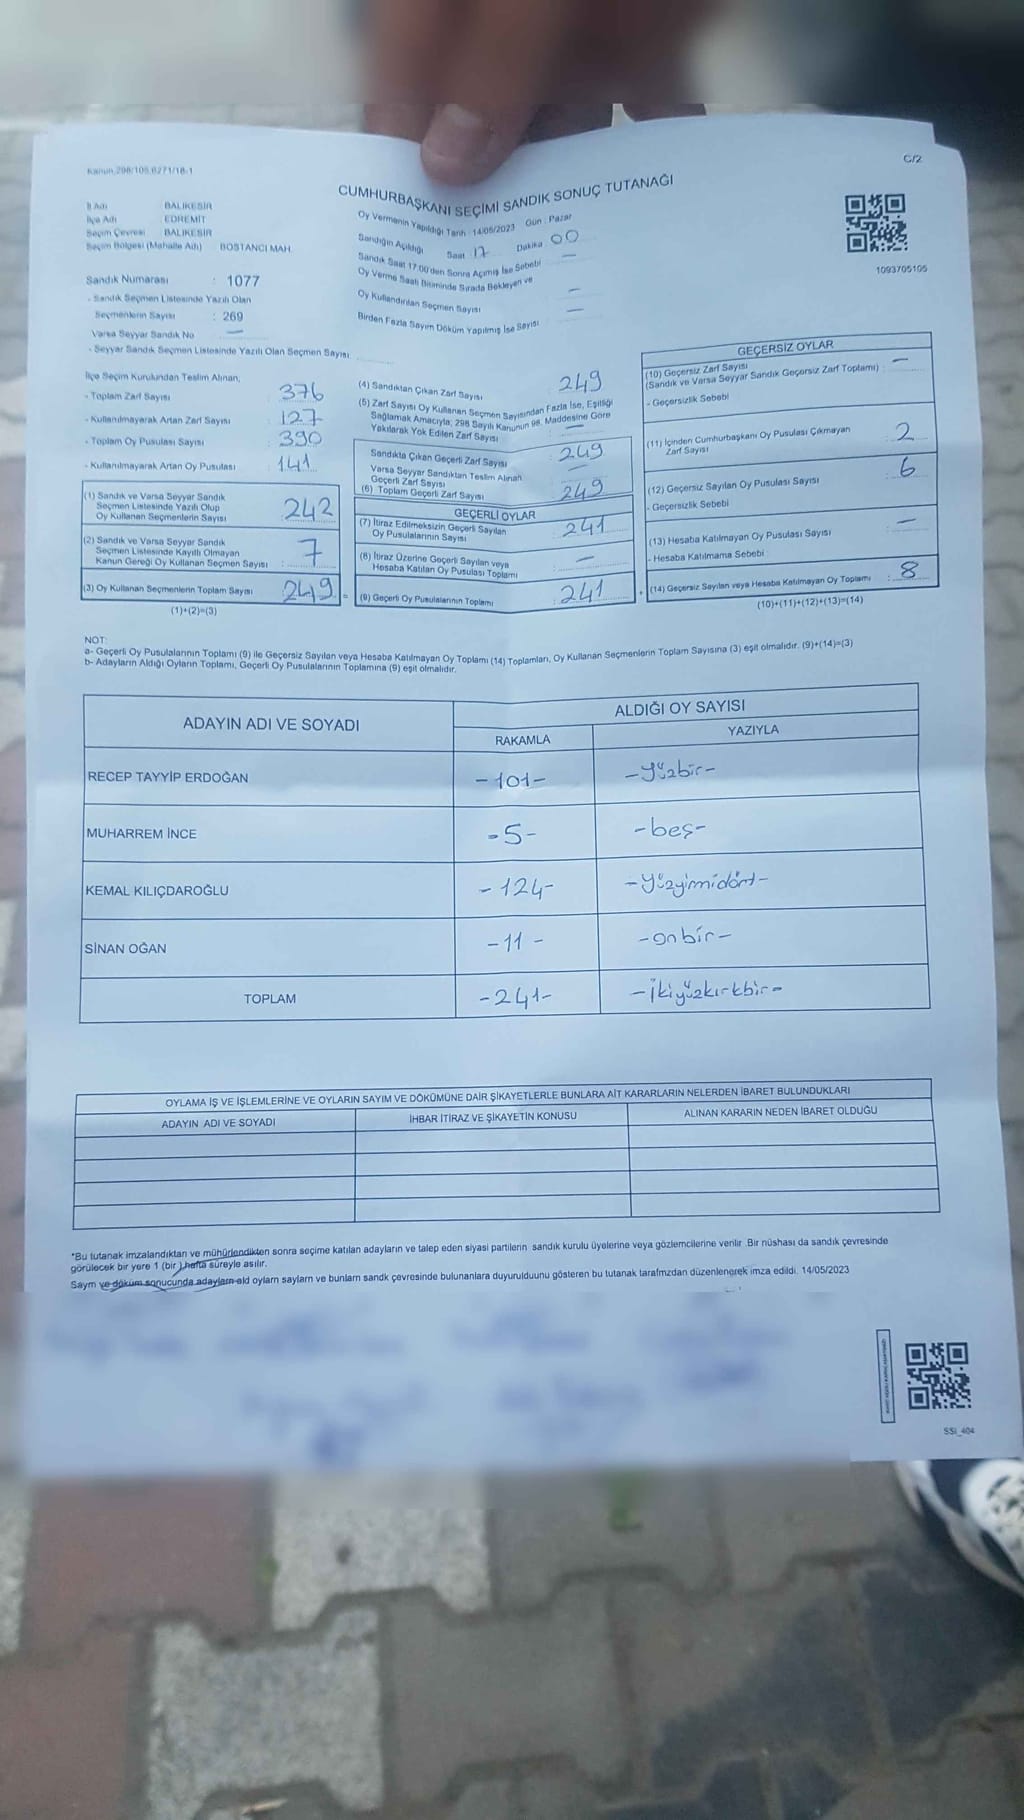 Kanun 298/105,6271/18-1
C/2
CUMHURBAŞKANI SEÇİMİ SANDIK SONUÇ TUTANAĞI
İl Adı BALIKESİR
İlçe Adı EDREMİT
Seçim Çevresi BALIKESİR
Seçim Bölgesi (Mahalle Adı) BOSTANCI MAH.
Sandık Numarası : 1077
- Sandık Seçmen Listesinde Yazılı Olan
Seçmenlerin Sayısı : 269
Varsa Seyyar Sandık No —
- Seyyar Sandık Seçmen Listesinde Yazılı Olan Seçmen Sayısı
Oy Vermenin Yapıldığı Tarih : 14/05/2023 Gün : Pazar
Sandığın Açıldığı Saat 17 Dakika 00
Sandık Saat 17:00'den Sonra Açılmış İse Sebebi —
Oy Verme Saati Bitiminde Sırada Bekleyen ve
Oy Kullandırılan Seçmen Sayısı —
Birden Fazla Sayım Döküm Yapılmış İse Sayısı —
1093705105
İlçe Seçim Kurulundan Teslim Alınan;
- Toplam Zarf Sayısı : 376
- Kullanılmayarak Artan Zarf Sayısı : 127
- Toplam Oy Pusulası Sayısı : 390
- Kullanılmayarak Artan Oy Pusulası : 141
(1) Sandık ve Varsa Seyyar Sandık
Seçmen Listesinde Yazılı Olup
Oy Kullanan Seçmenlerin Sayısı : 242
(2) Sandık ve Varsa Seyyar Sandık
Seçmen Listesinde Kayıtlı Olmayan
Kanun Gereği Oy Kullanan Seçmen Sayısı : 7
(3) Oy Kullanan Seçmenlerin Toplam Sayısı : 249 =
(1)+(2)=(3)
(4) Sandıktan Çıkan Zarf Sayısı : 249
(5) Zarf Sayısı Oy Kullanan Seçmen Sayısından Fazla İse, Eşitliği
Sağlamak Amacıyla; 298 Sayılı Kanunun 98. Maddesine Göre
Yakılarak Yok Edilen Zarf Sayısı : —
Sandıkta Çıkan Geçerli Zarf Sayısı : 249
Varsa Seyyar Sandıktan Teslim Alınan
Geçerli Zarf Sayısı —
(6) Toplam Geçerli Zarf Sayısı 249
GEÇERLİ OYLAR
(7) İtiraz Edilmeksizin Geçerli Sayılan
Oy Pusulalarının Sayısı : 241
(8) İtiraz Üzerine Geçerli Sayılan veya
Hesaba Katılan Oy Pusulası Toplamı : —
(9) Geçerli Oy Pusulalarının Toplamı : 241 +
GEÇERSİZ OYLAR
(10) Geçersiz Zarf Sayısı —
(Sandık ve Varsa Seyyar Sandık Geçersiz Zarf Toplamı) :
- Geçersizlik Sebebi
(11) İçinden Cumhurbaşkanı Oy Pusulası Çıkmayan
Zarf Sayısı : 2
(12) Geçersiz Sayılan Oy Pusulası Sayısı : 6
- Geçersizlik Sebebi
(13) Hesaba Katılmayan Oy Pusulası Sayısı : —
- Hesaba Katılmama Sebebi :
(14) Geçersiz Sayılan veya Hesaba Katılmayan Oy Toplamı : 8
(10)+(11)+(12)+(13)=(14)
NOT:
a- Geçerli Oy Pusulalarının Toplamı (9) ile Geçersiz Sayılan veya Hesaba Katılmayan Oy Toplamı (14) Toplamları, Oy Kullanan Seçmenlerin Toplam Sayısına (3) eşit olmalıdır. (9)+(14)=(3)
b- Adayların Aldığı Oyların Toplamı, Geçerli Oy Pusulalarının Toplamına (9) eşit olmalıdır.
ADAYIN ADI VE SOYADI ALDIĞI OY SAYISI
RAKAMLA YAZIYLA
RECEP TAYYİP ERDOĞAN -101- -yüzbir-
MUHARREM İNCE -5- -beş-
KEMAL KILIÇDAROĞLU -124- -yüzyimidört-
SİNAN OĞAN -11- -onbir-
TOPLAM -241- -ikiyüzkırkbir-
OYLAMA İŞ VE İŞLEMLERİNE VE OYLARIN SAYIM VE DÖKÜMÜNE DAİR ŞİKAYETLERLE BUNLARA AİT KARARLARIN NELERDEN İBARET BULUNDUKLARI
ADAYIN ADI VE SOYADI İHBAR İTİRAZ VE ŞİKAYETİN KONUSU ALINAN KARARIN NEDEN İBARET OLDUĞU
*Bu tutanak imzalandıktan ve mühürlendikten sonra seçime katılan adayların ve talep eden siyasi partilerin sandık kurulu üyelerine veya gözlemcilerine verilir. Bir nüshası da sandık çevresinde
görülecek bir yere 1 (bir ) hafta süreyle asılır.
Saym ve döküm sonucunda adaylarn ald oylarn saylarn ve bunlarn sandk çevresinde bulunanlara duyurulduunu gösteren bu tutanak tarafmzdan düzenlenerek imza edildi. 14/05/2023
SSI_404